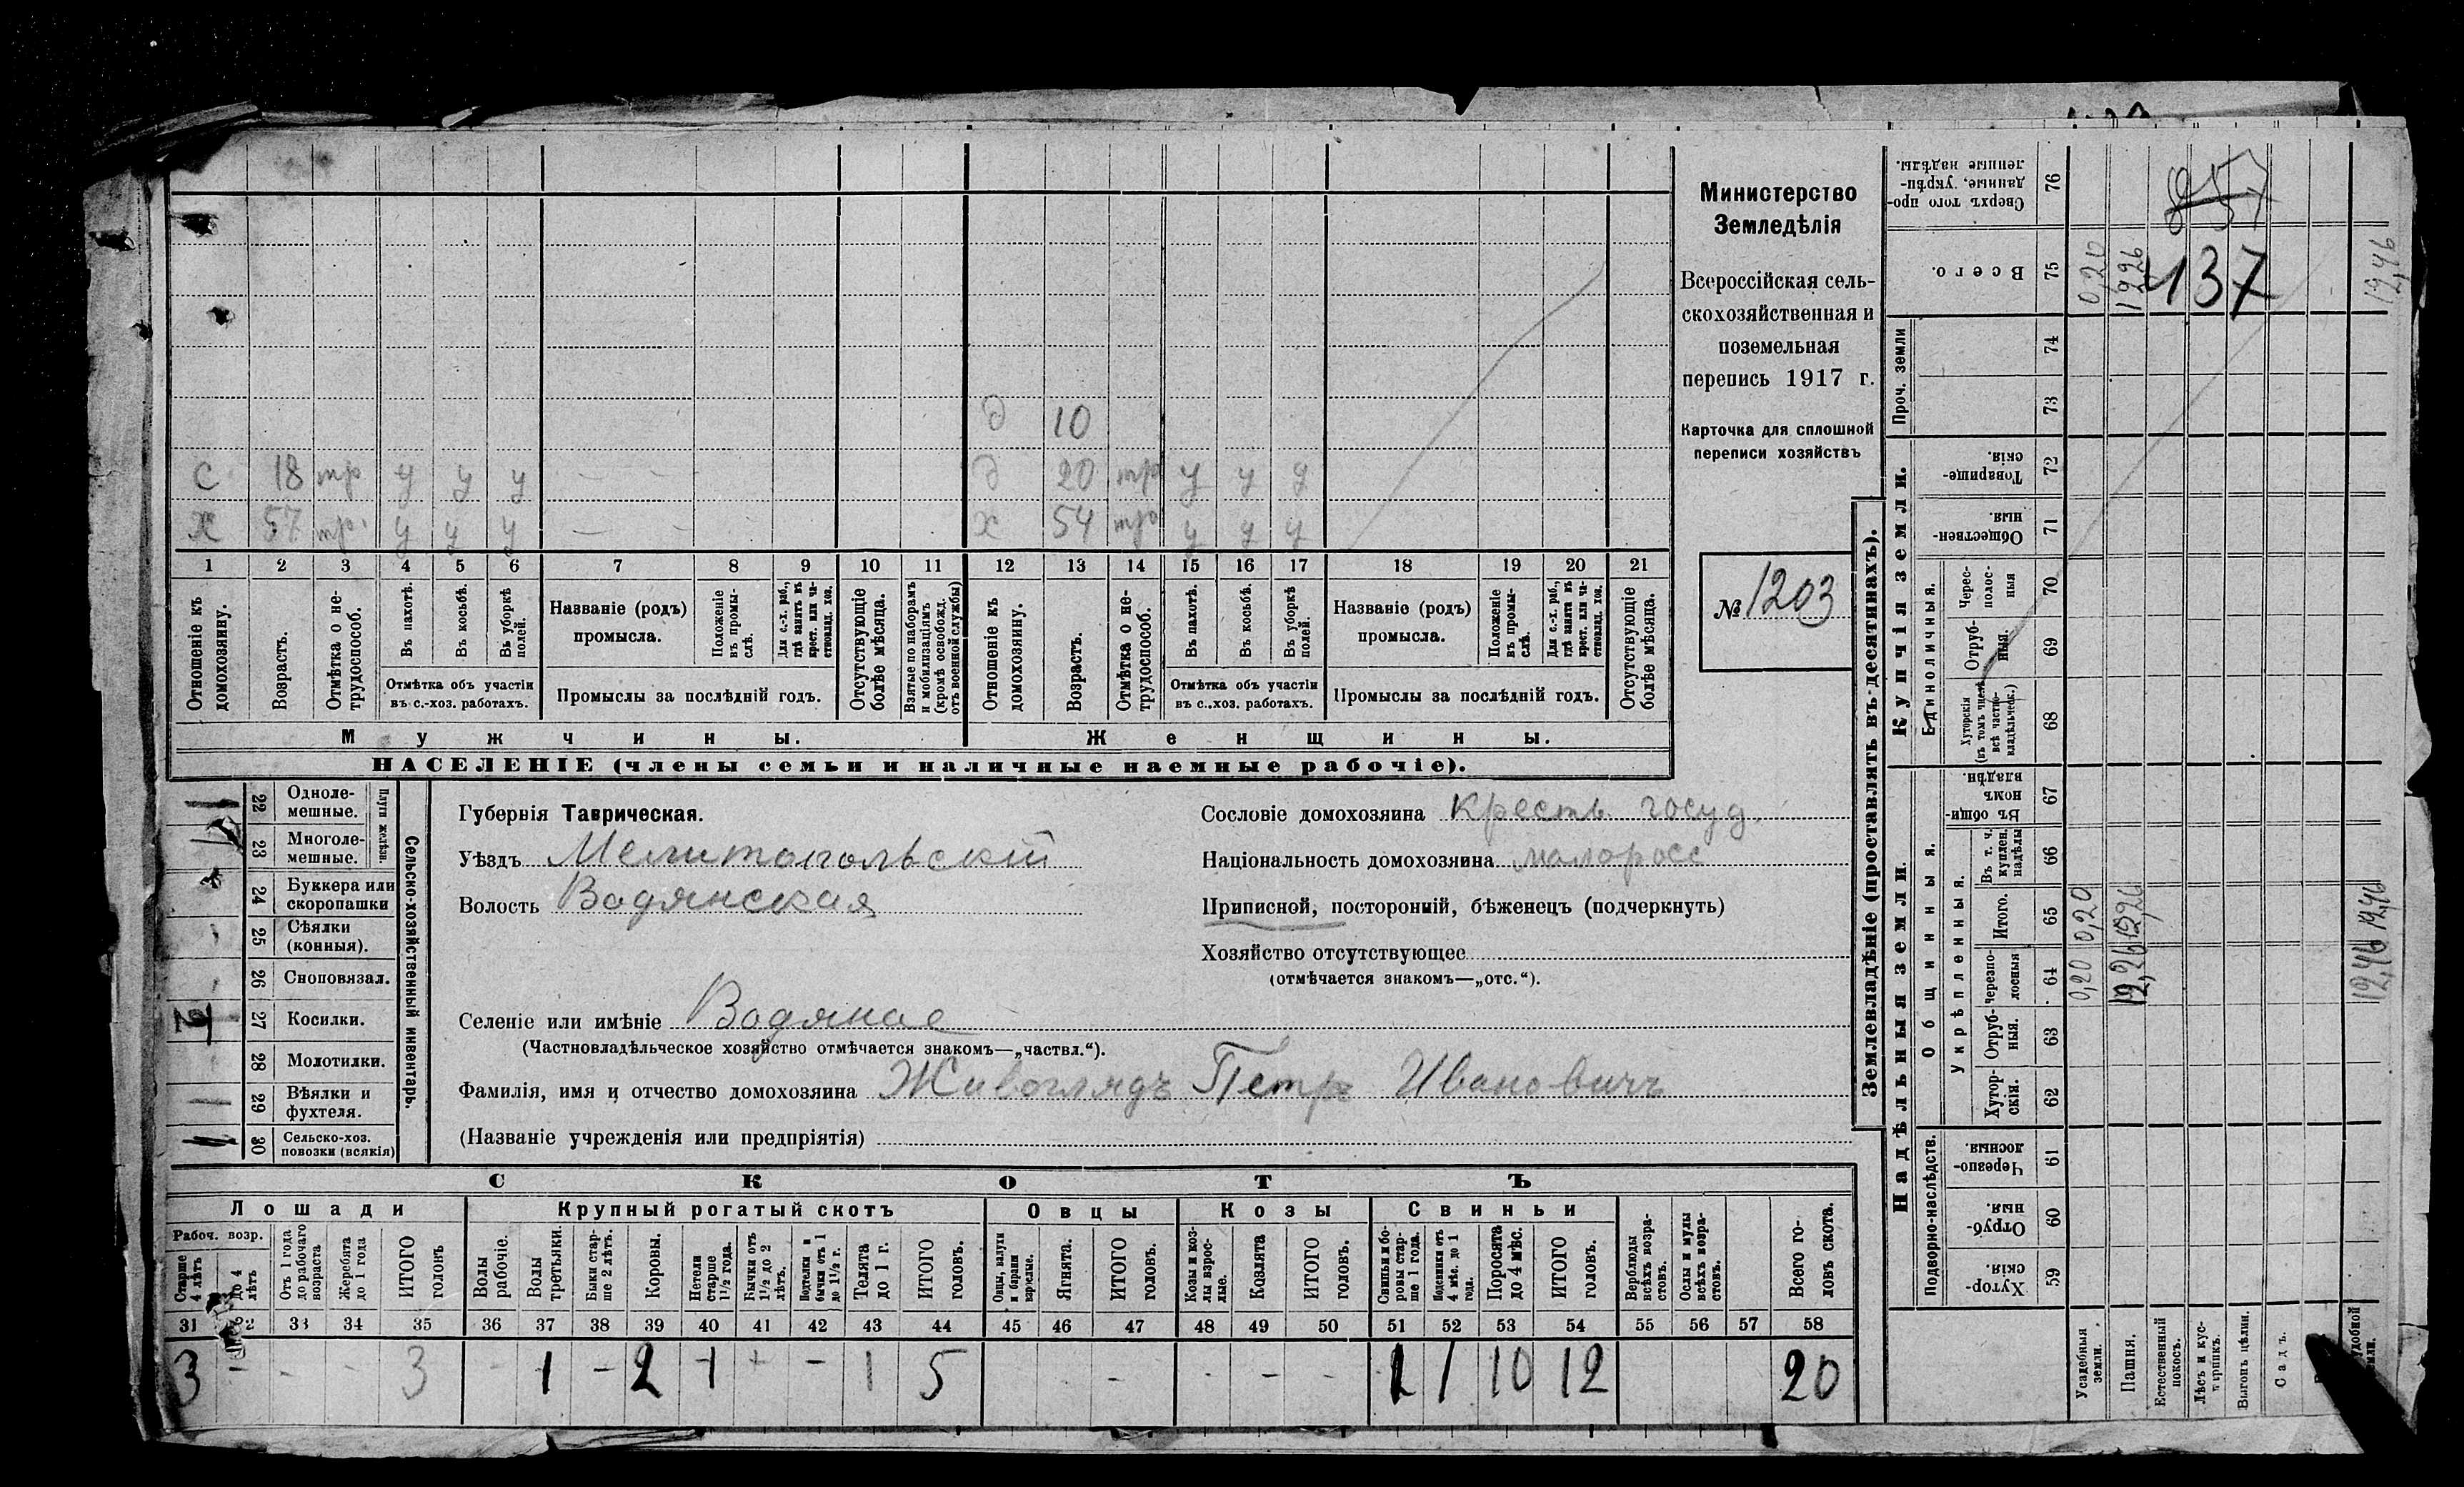 Министерство
Земледѣлія
Всероссійская сель-
скохозяйственная и
поземельная
перепись 1917 г.
Карточка для сплошной
переписи хозяйствъ
№ 1203
д 10
с 18 тр у у у - - д 20 тр у у у
х 57 тр. у у у - - - х 54 тр у у у
1 2 3 4 5 6 7 8 9 10 11 12 13 14 15 16 17 18 19 20 21
Отношеніе къ домохозяину.
Возрастъ.
Отмѣтка о не-трудоспособ.
Въ пахотѣ.
Въ косьбѣ.
Въ уборкѣ полей.
Отмѣтка объ участіи
въ с.-хоз. работахъ.
Названіе (родъ)
промысла.
Положеніе въ промы-слѣ.
Для с.-х. раб., гдѣ занятъ въ крест. или ча-стновлад. хоз.
Промыслы за послѣдній годъ.
Отсутствующіе болѣе мѣсяца.
Взятые по наборамъ и мобилизаціямъ (кромѣ освобожд. отъ военной службы)
Отношеніе къ домохозяину.
Возрастъ.
Отмѣтка о не-трудоспособ.
Въ пахотѣ.
Въ косьбѣ.
Въ уборкѣ полей.
Отмѣтка объ участіи
въ с..хоз. работахъ.
Названіе (родъ)
промысла.
Положеніе въ промы-слѣ.
Для с.-х. раб., гдѣ занята въ крест. или ча-стновлад. хоз.
Промыслы за послѣдній годъ.
Отсутствующіе болѣе мѣсяца.
Мужчины. Женщины.
НАСЕЛЕНІЕ (члены семьи и наличные наемные рабочіе).
Сельско-хозяйственный инвентарь.
Плуги желѣзн.
22 Одноле-мешные.
23 Многоле-мешные.
24 Буккера или скоропашки
25 Сѣялки (конныя).
26 Сноповязал.
27 Косилки.
28 Молотилки.
29 Вѣялки и фухтеля.
30 Сельско-хоз. повозки (всякія)
Губернія Таврическая.
Уѣздъ Мелитопольскій
Волость Водянская
Селеніе или имѣніе Водяное
(Частновладѣльческое хозяйство отмѣчается знакомъ—„частвл.“).
Фамилія, имя и отчество домохозяина Живоглядъ Петръ Ивановичъ
(Названіе учрежденія или предпріятія)
Сословіе домохозяина крестъ. госуд.
Національность домохозяина малоросс
Приписной, посторонній, бѣженецъ (подчеркнуть)
Хозяйство отсутствующее
(отмѣчается знакомъ—„отс.“).
СКОТЪ
Лошади Крупный рогатый скотъ Овцы Козы Свиньи
Рабоч. возр.
Старше 4 лѣтъ
до 4 лѣтъ
Отъ 1 года до рабочаго возраста
Жеребята до 1 года
ИТОГО головъ
Волы рабочіе.
Волы третьяки.
Быки стар-ше 2 лѣтъ.
Коровы.
Нетели старше 1½ года.
Бычки отъ 1½ до 2 лѣтъ.
Подтелки и бычки отъ 1 до 1½ г.
Телята до 1 г.
ИТОГО головъ.
Овцы, валухи и бараны взрослые.
Ягнята.
ИТОГО головъ.
Козы и коз-лы взрос-лые.
Козлята
ИТОГО головъ.
Свиньи и бо-ровы стар-ше 1 года.
Подсвинки отъ 4 мѣс. до 1 года.
Поросята до 4 мѣс.
ИТОГО головъ.
Верблюды всѣхъ возра-стовъ.
Ослы и мулы всѣхъ возра-стовъ.
Всего го-ловъ скота.
31 33 34 35 36 37 38 39 40 41 42 43 44 45 46 47 48 49 50 51 52 53 54 55 56 57 58
3 - - - 3 - 1 - 2 1 - 1 5 - - - 1 1 10 12 20
Землевладѣніе (проставлять въ десятинахъ).
Надѣльныя земли. Купчія земли. Проч. земли
Подворно-наслѣдств.
Общинныя.
Укрѣпленныя.
Единоличныя.
Хутор-скія. 59
Отруб-ныя. 60
Черезпо-лосныя. 61
Хутор-скія. 62
Отруб-ныя. 63
Черезпо-лосныя 64
Итого. 65
Въ т. ч. куплен. надѣлы 66
Въ общи-номъ владѣн. 67
Хуторскія (въ томъ числѣ всѣ частно-владѣльческ.) 68
Отруб-ныя. 69
Черес-полос-ныя 70
Обществен-ныя. 71
Товарище-скія. 72
73
74
Всего. 75
Сверхъ того про-данные, укрѣп-ленные надѣлы. 76
Усадебныя земли. 0,20 0,20 0,20
Пашня. 12,26 12,26 12,26
Естественный покосъ.
Лѣсъ и кус-тарникъ.
Выгонъ цѣлин.
Садъ.
удобной земли. 12,46 12,46 12,46
137